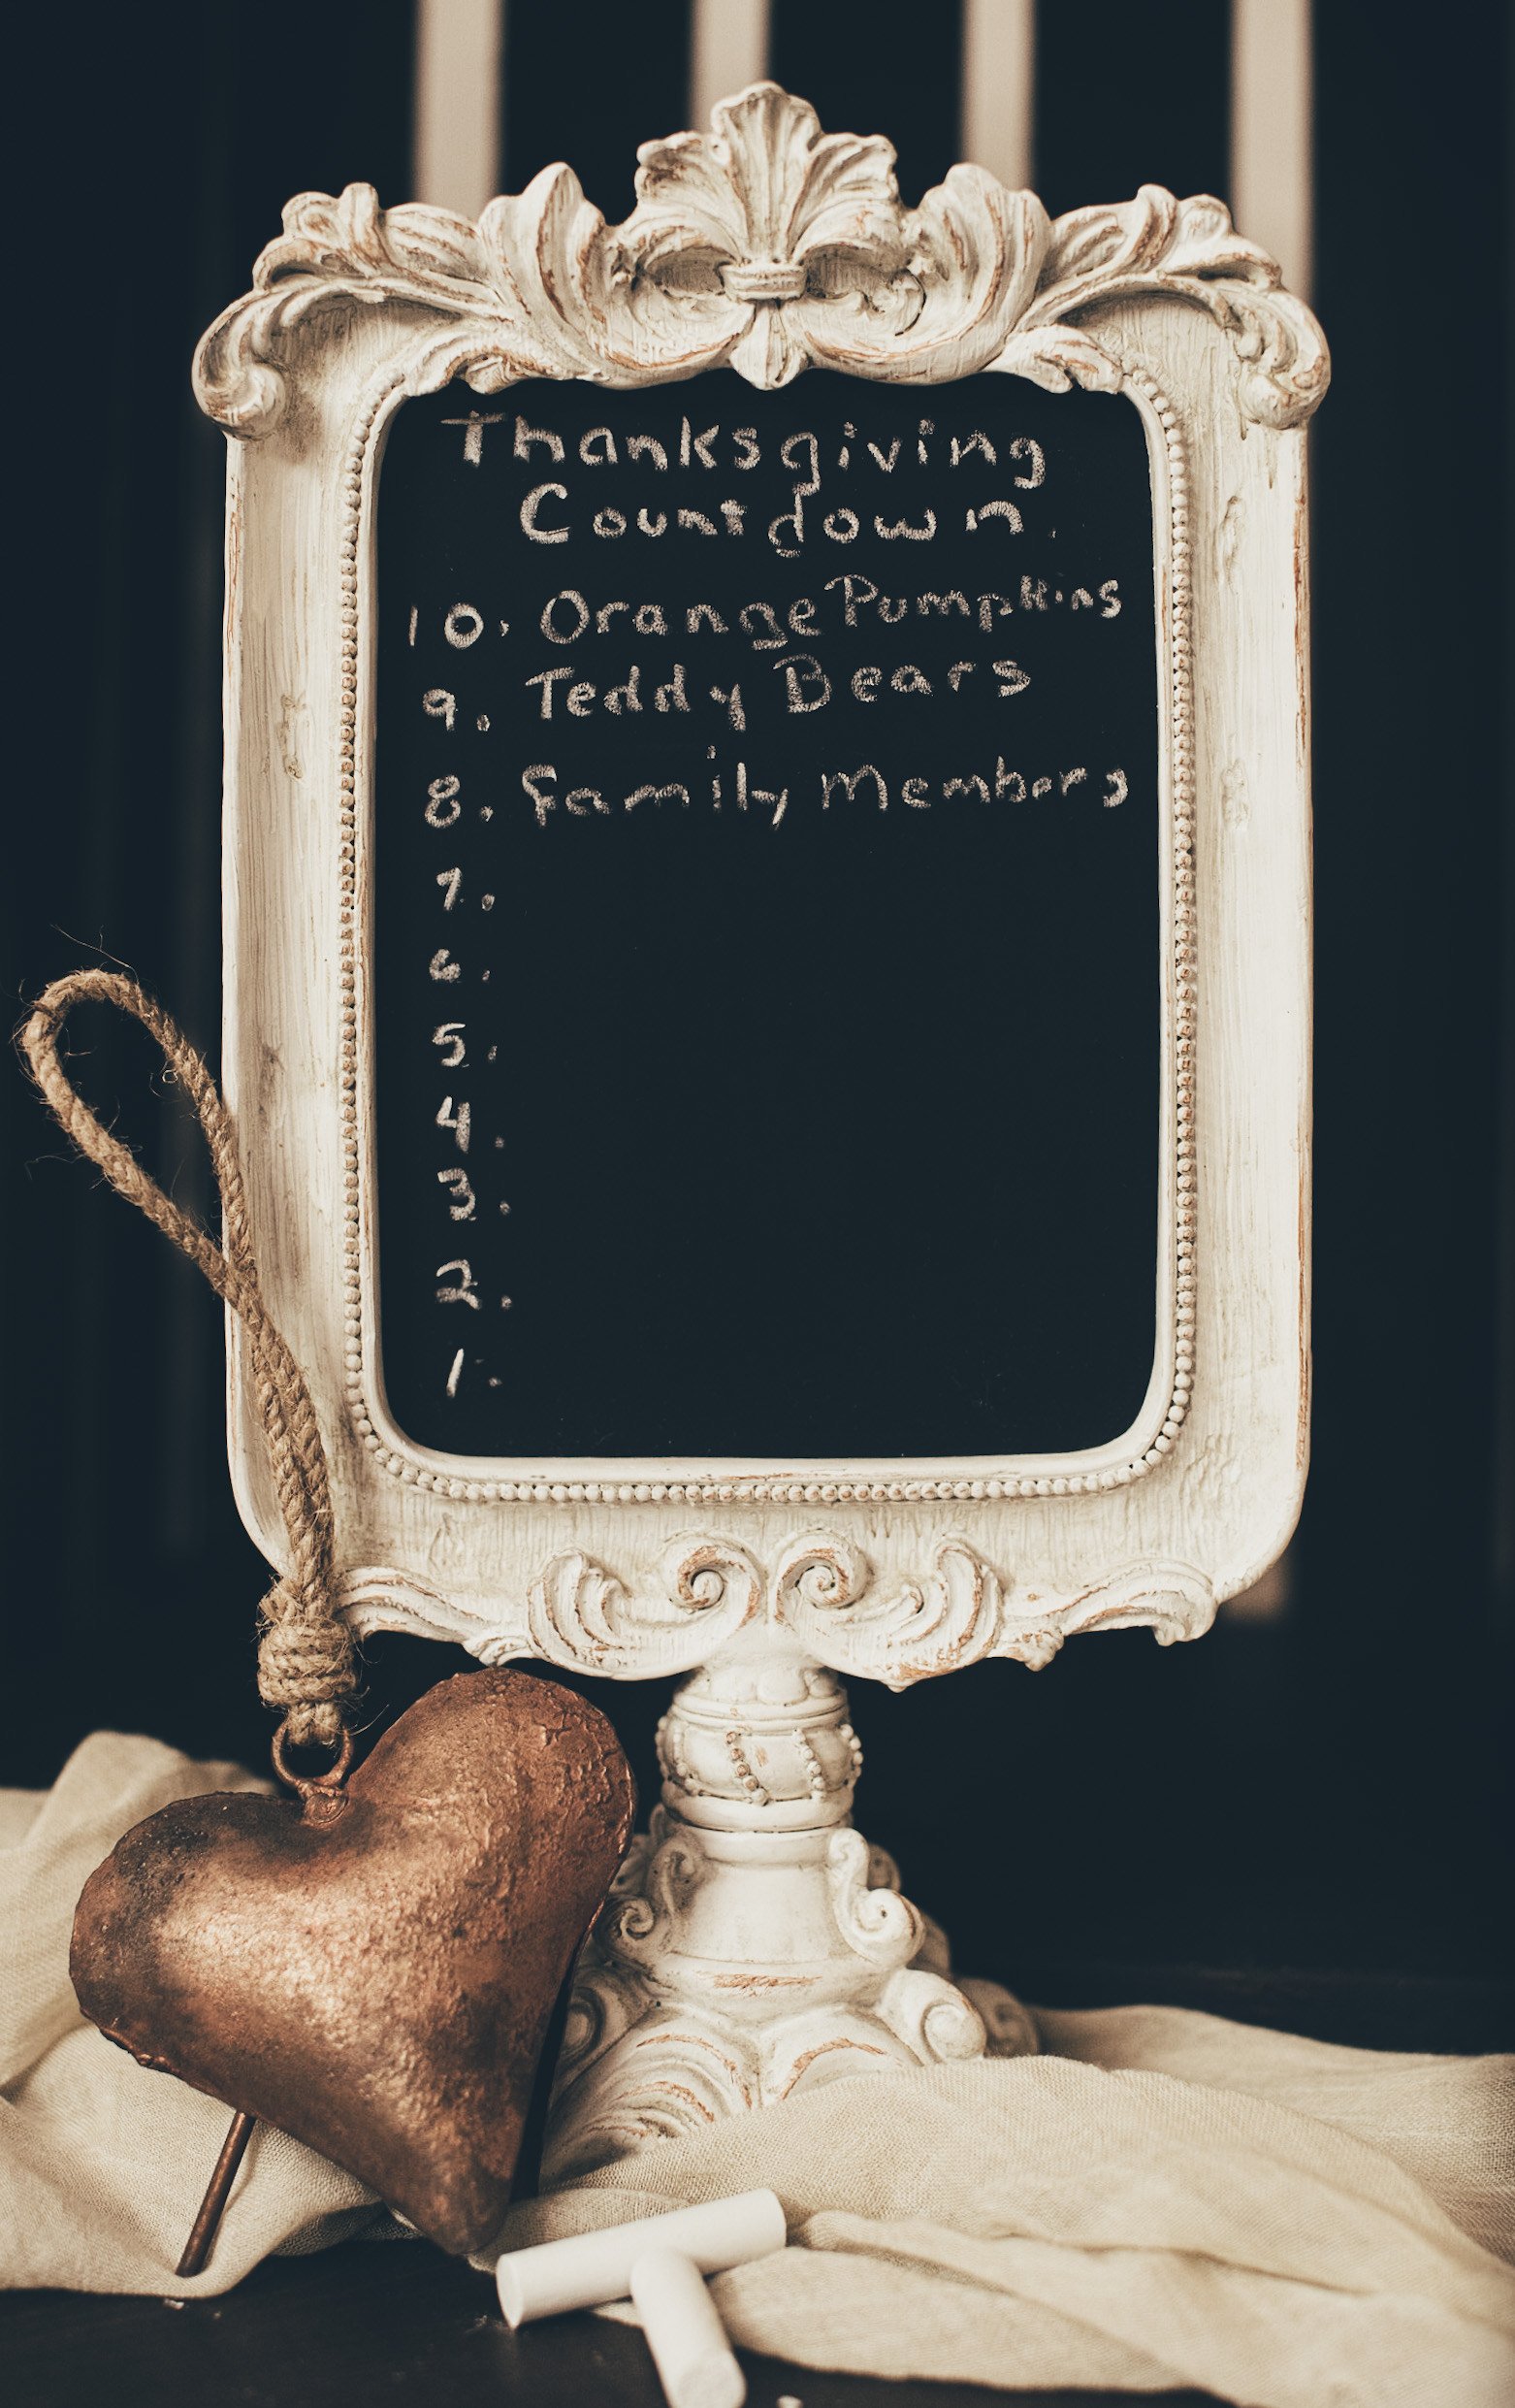 Thanksgiving
Countdown.
10. Orange Pumpkins
9. Teddy Bears
8. Family Members
7.
6.
5.
4.
3.
2.
1.